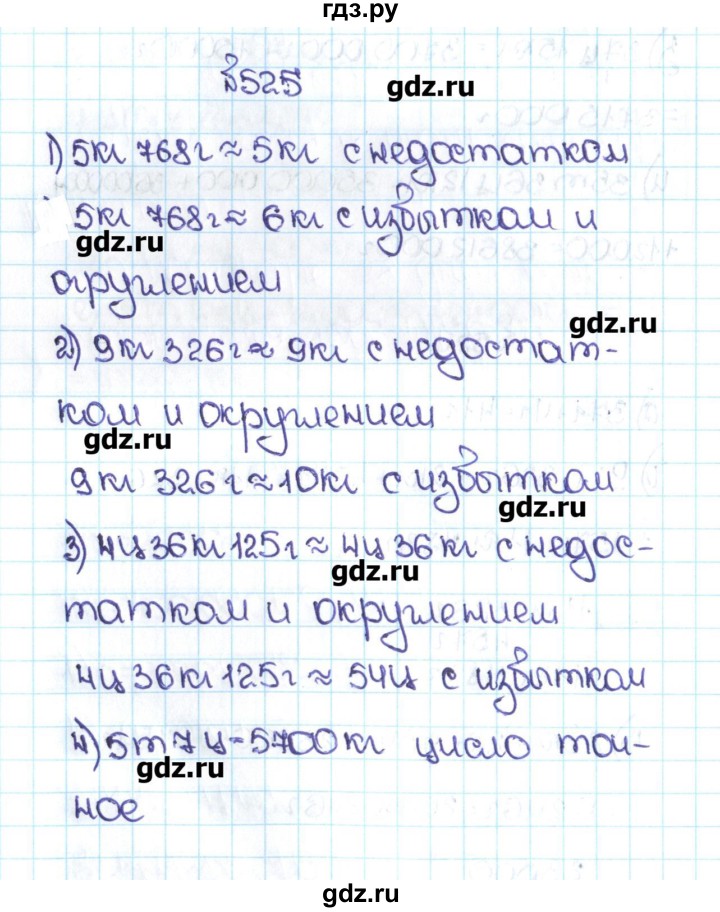 гдз.ру
№525
gdz.ru
1) 5кг 768г ≈ 5кг с недостатком
5кг 768г ≈ 6кг с избытком и
gdz.ru
округлением
gdz.ru
2) 9кг 326г ≈ 9кг с недостат-
ком и округлением
gdz.ru
9кг 326г ≈ 10кг с избытком
gdz.ru
3) 4ц 36кг 125г ≈ 4ц 36кг с недос-
gdz.ru
татком и округлением
4ц 36кг 125г ≈ 54ц с избытком
4) 5т 7ц = 5700кг число точ-
gdz.ru
ное
gdz.ru